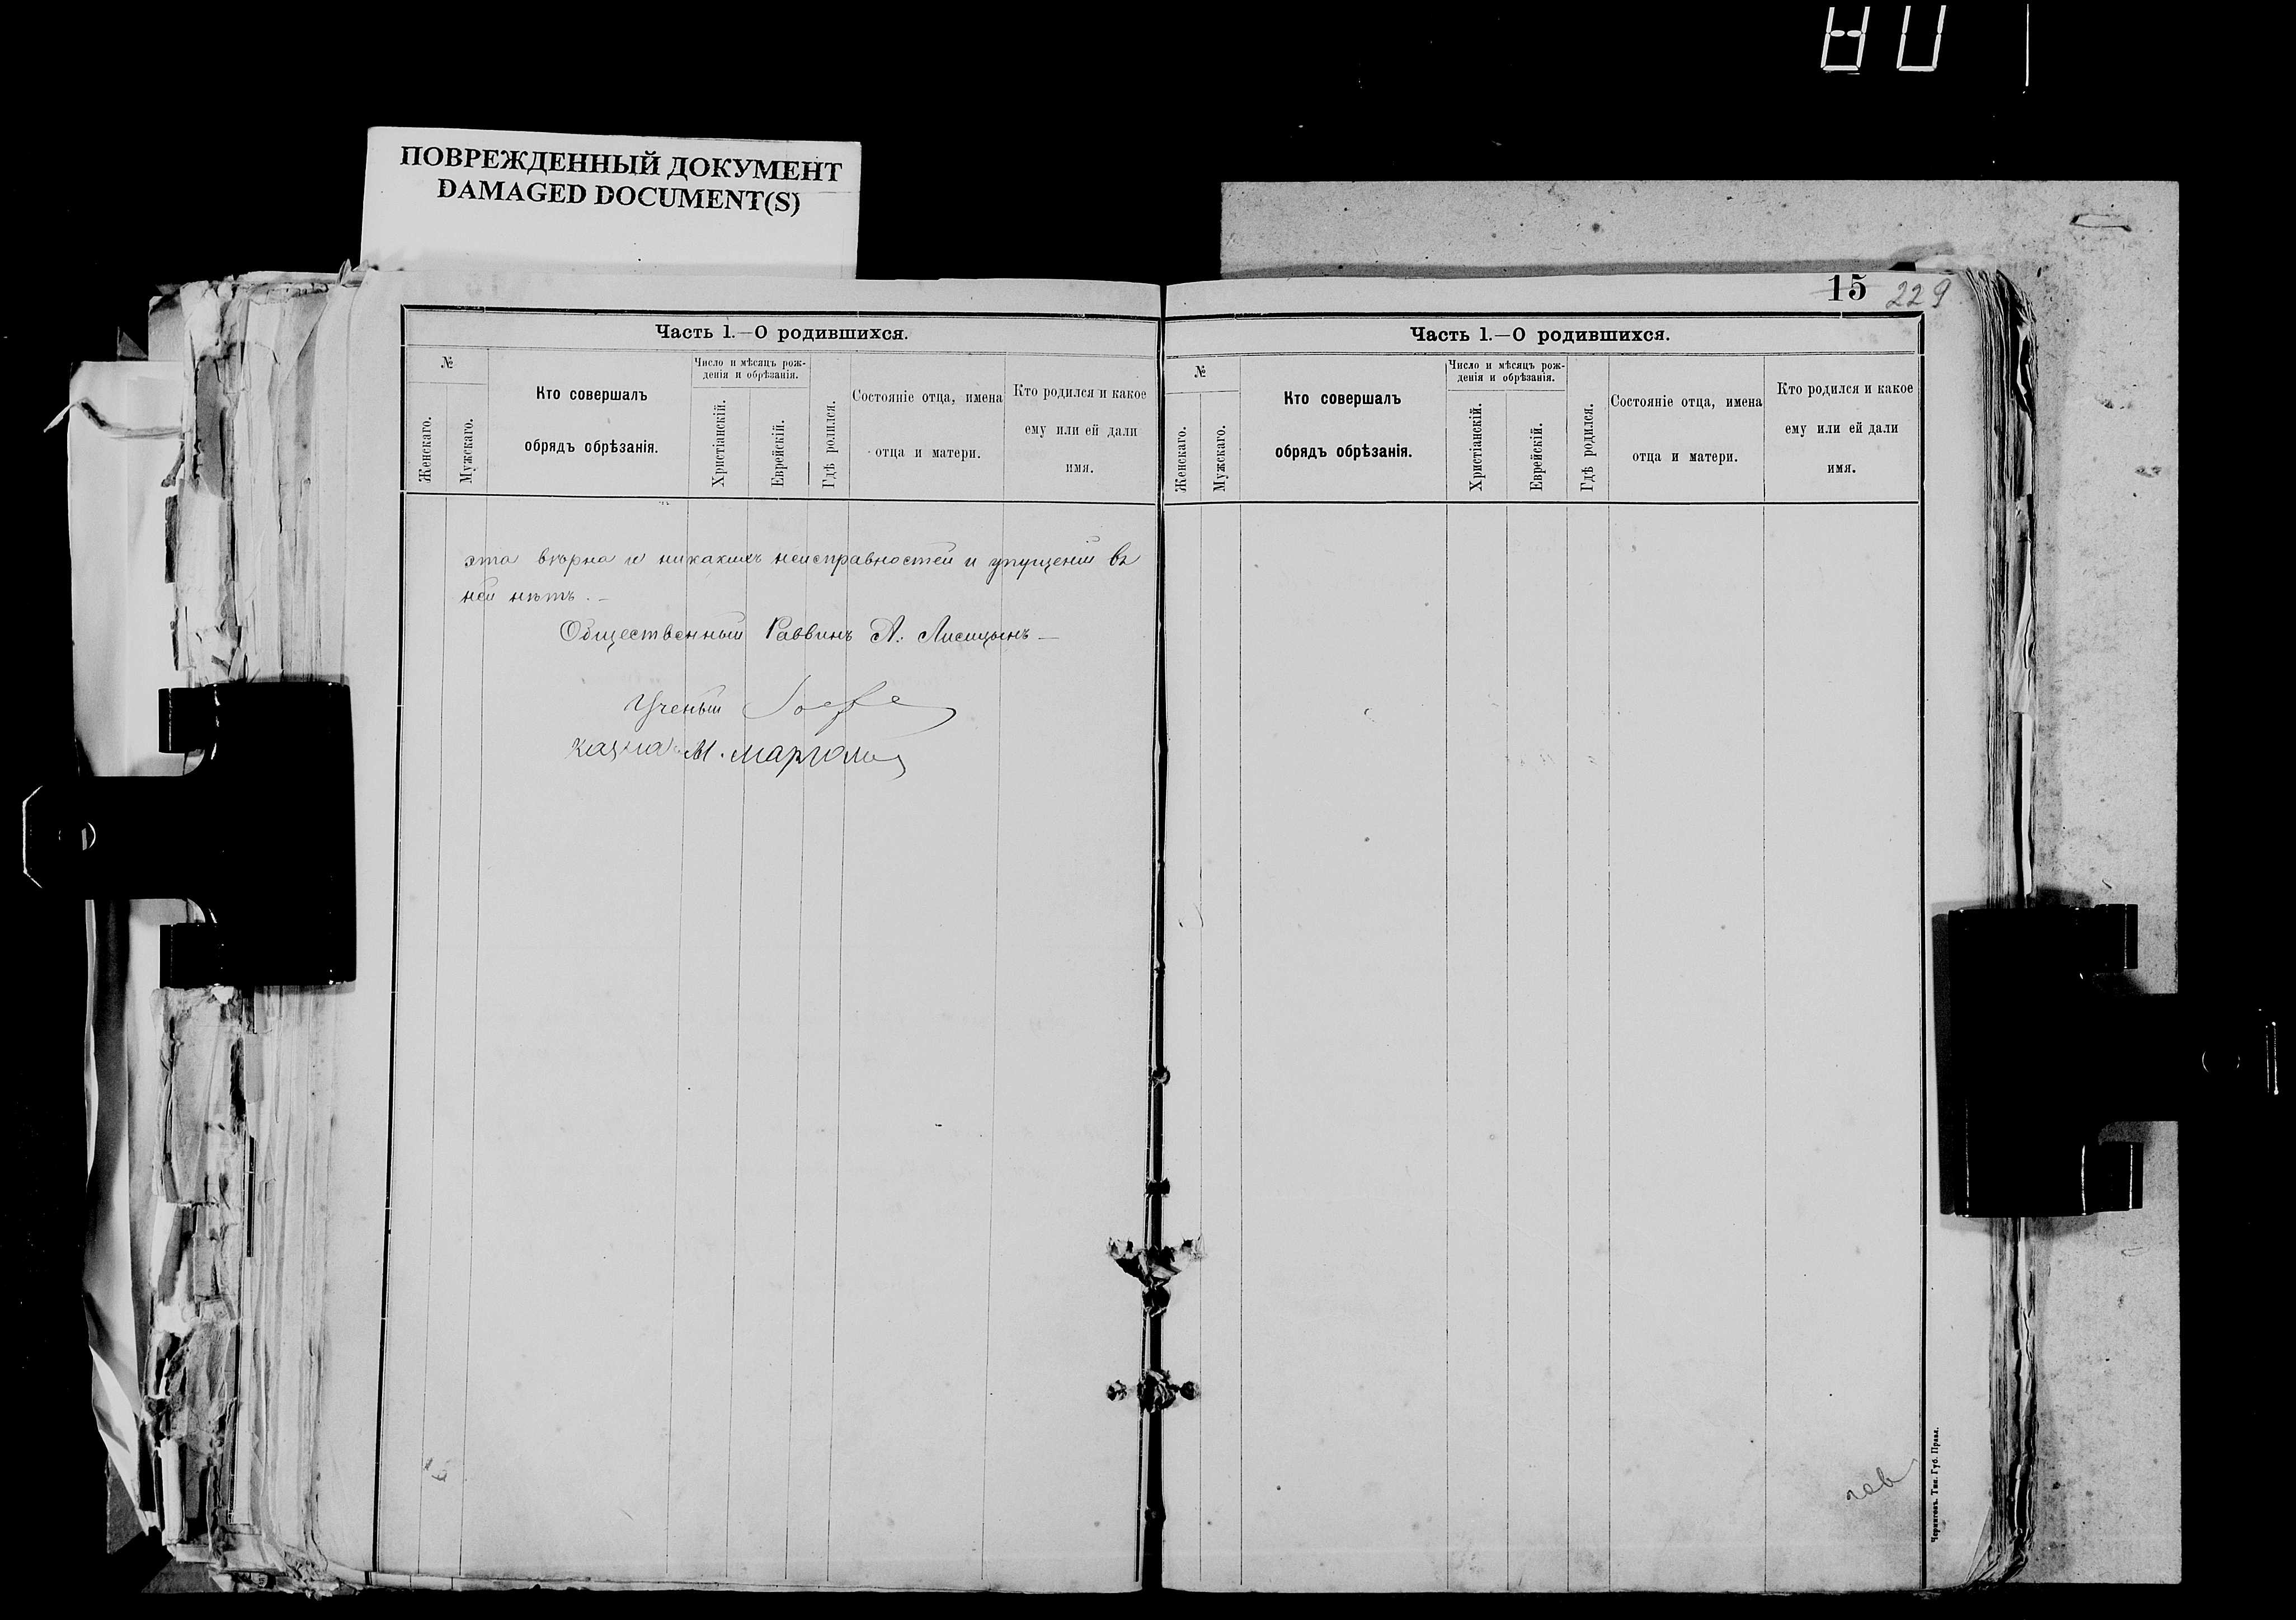 ПОВРЕЖДЕННЫЙ ДОКУМЕНТ
DAMAGED DOCUMENT(S)
Часть 1.—О родившихся.
№
Женскаго.
Мужскаго.
Кто совершалъ
обрядъ обрѣзанія.
Число и мѣсяцъ рож-
денія и обрѣзанія.
Христіанскій.
Еврейскій.
Гдѣ родился.
Состояніе отца, имена
отца и матери.
Кто родился и какое
ему или ей дали
имя.
эта вѣрна и никакихъ неисправностей и упущеній въ
ней нѣтъ. —
Общественный Раввинъ А. Лисицынъ —
Ученый
М.
15 229
Часть 1.—О родившихся.
№
Женскаго.
Мужскаго.
Кто совершалъ
обрядъ обрѣзанія.
Число и мѣсяцъ рож-
денія и обрѣзанія.
Христіанскій.
Еврейскій.
Гдѣ родился.
Состояніе отца, имена
отца и матери.
Кто родился и какое
ему или ей дали
имя.
Черниговъ. Тип. Губ. Правл.